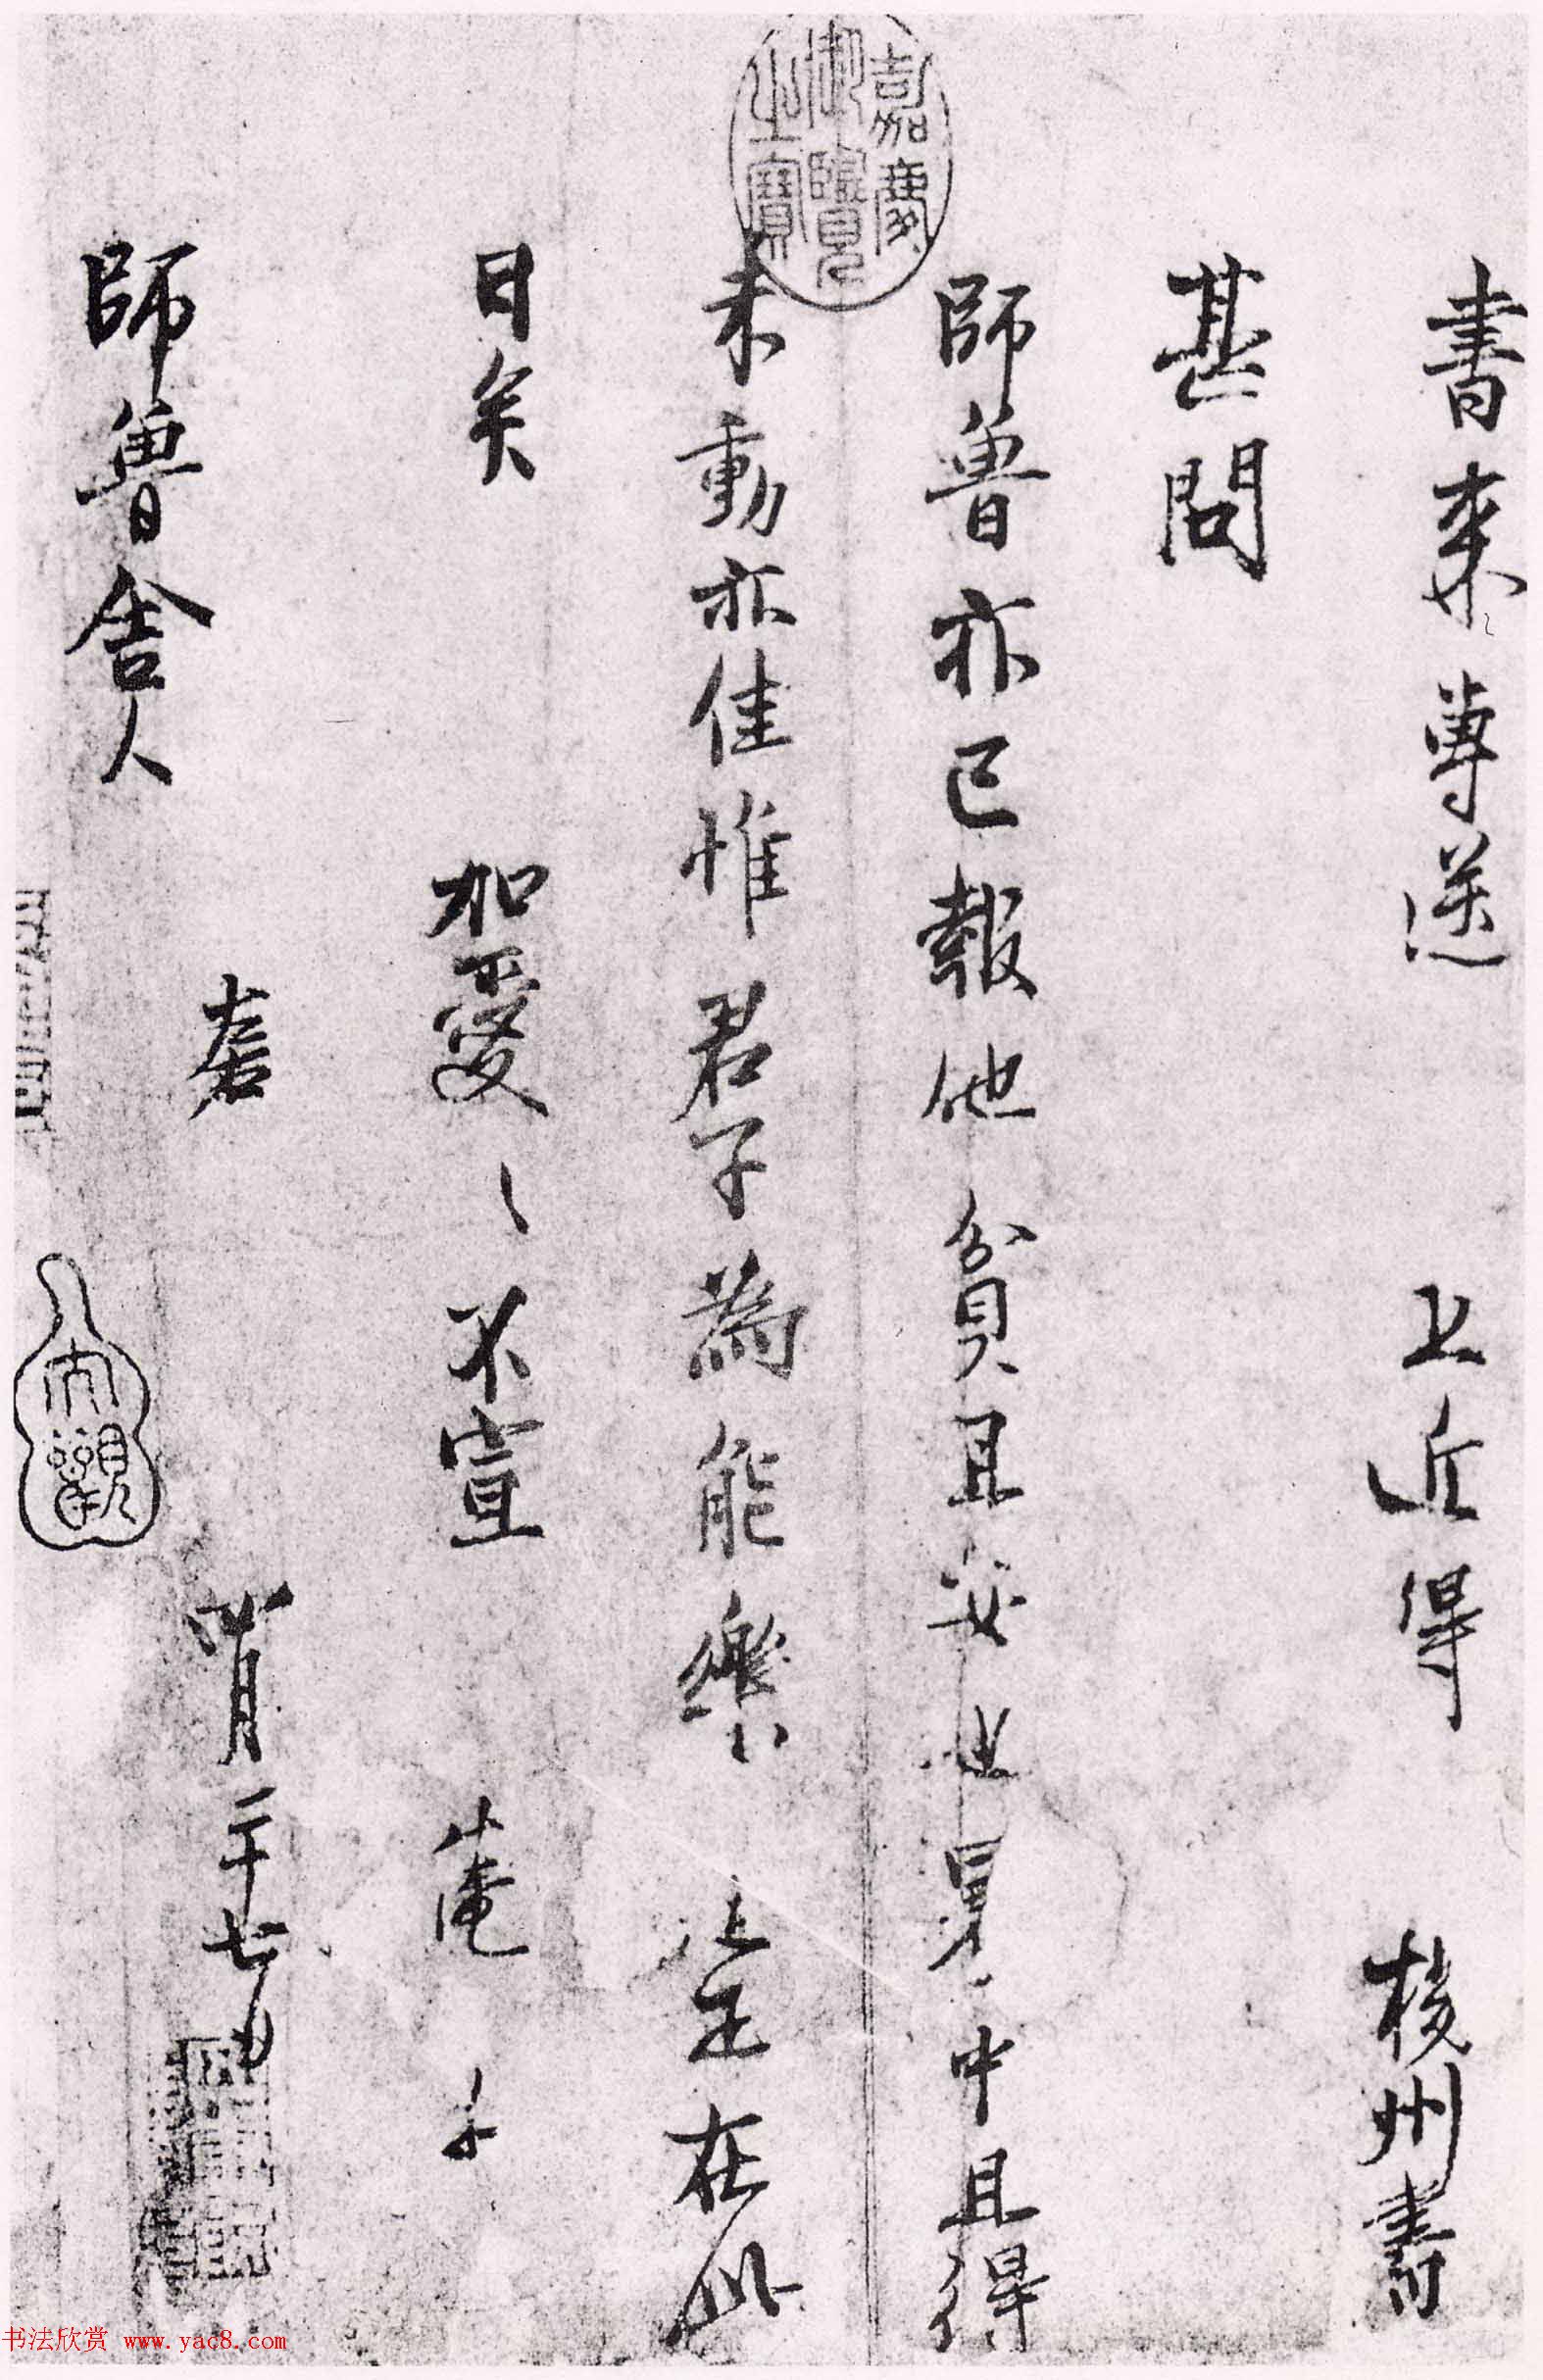 書来專送上近得揚州書
甚問
師魯亦已報他貧且安也夏中且得
未動亦佳惟君子為能樂道正在此
日矣加愛〻不宣仲淹
師魯舍人左右四月二十七日
嘉慶御覽之寶
大觀
书法欣赏 www.yac8.com